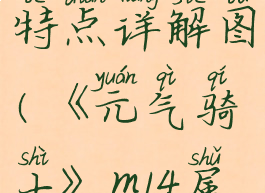 特点详解图
yuán qì qí
(《元气骑
shì shǔ
士》m14属